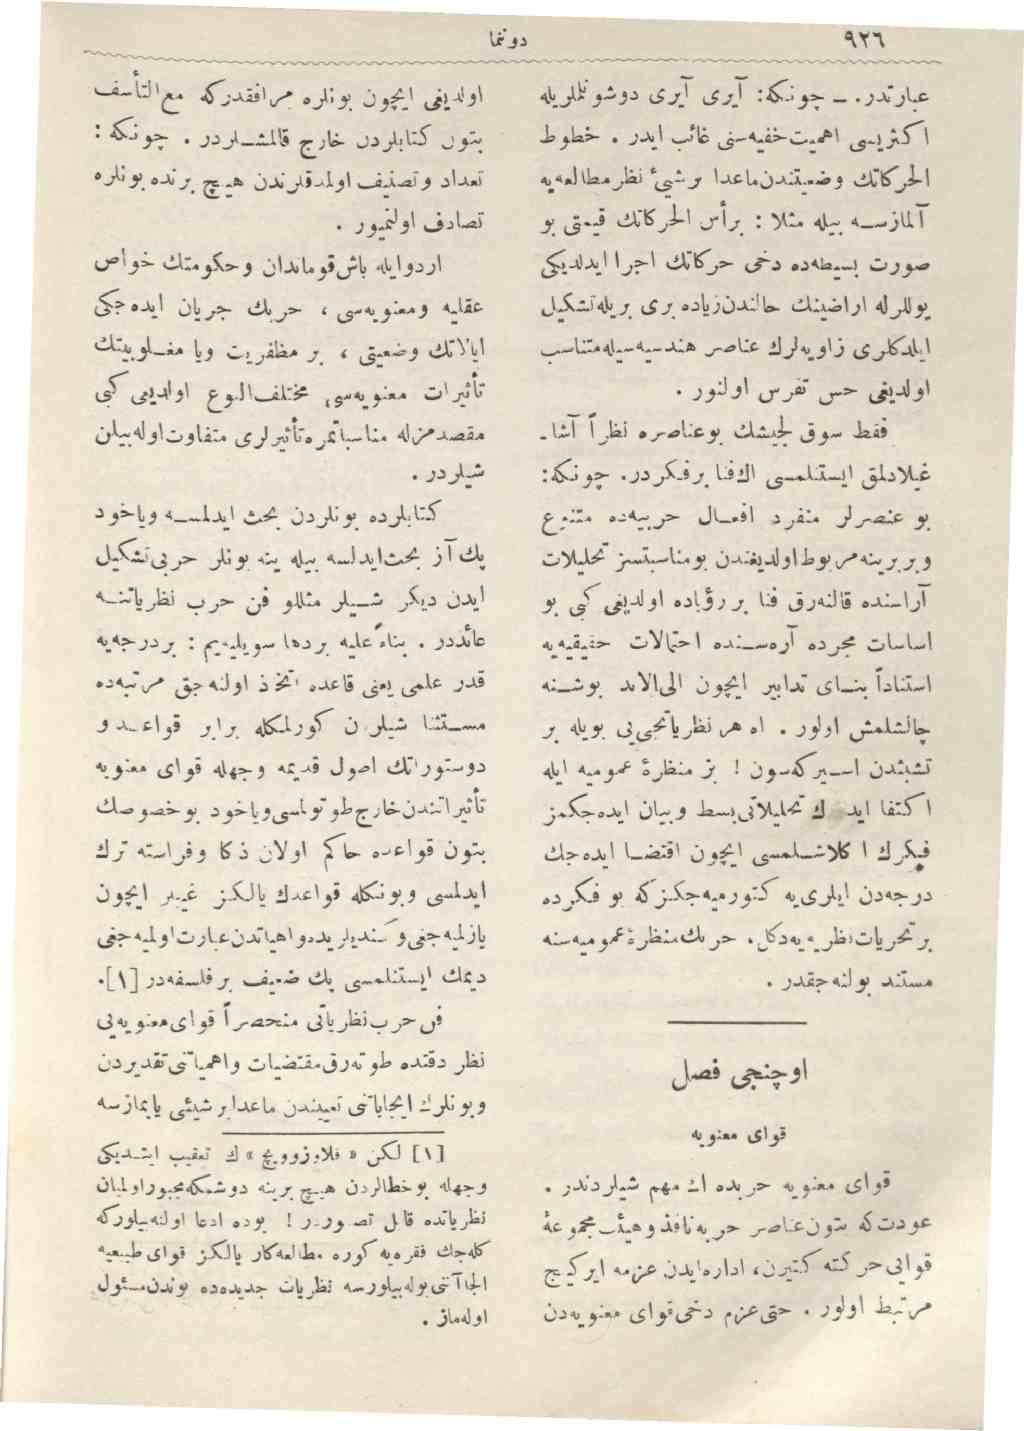 ٩٢٦
دوننما
عبارتدر. ــ چونكه: آيرى آيرى دوشونلملريله
اكثريسى اهميت خفيه‌سنى غائب ايدر . خطوط
الحركاتك وضعيتندن ماعدا بر شيئ نظر مطالعه‌يه
آلمازســه بيله مثلا : برأس الحركاتك قيمتى بو
صورت بسيطه‌ده دخى حركاتك اجرا ايدلديكى
يوللرله اراضينك حالندن زياده برى بريله تشكيل
ايلدكلرى زاويه‌لرك عناصر هندسيه‌سيله متناسب
اولديغى حس تفرس اولنور .
فقط سوق الجيشك بو عناصره نظراً آشا-
غيلادلمق ايستنلمسى اك فنا بر فكردر. چونكه:
بو عنصرلر منفرد افعــال حربيه‌ده متنوع
و بربرينه مربوط اولديغندن بو مناسبتسز تحليلات
آراسنده قالنه‌رق فنا بر رؤياده اولديغى كبى بو
اساسات مجرده آره‌ســنده احتمالات حقيقيه‌يه
استناداً بنــاى تدابير ايچون الى الابد بوشــنه
چالشلمش اولور . اه هر نظرياتجى‌يى بويله بر
تشبثدن اســيركه‌سون ! بز منظرۀ عموميه ايله
اكتفا ايدرك تحليلاتى بسط و بيان ايده‌جكمز
فيكرك اكلاشــلمسى ايچون اقتضــا ايده‌جك
درجه‌دن ايلرى‌يه كتورميه‌جكز كه بو فكرده
بر تحريات نظريه‌يه دكل. حربك منظرۀ عموميه‌سنه
مستند بولنه‌جقدر .
اوچنجى فصل
قواى معنويه
قواى معنويه حربده اك مهم شيلردندر .
عودت كه بتون عناصر حربه نافذ و هيئت مجموعۀ
قوايى حركته كتيرن، اداره ايدن عزمه ايركيج
مرتبط اولور . حتى عزم دخى قواى معنويه‌دن
اولديغى ايچون بونلره مرافقدر كه مع التأسف
بتون كتابلردن خارج قالمشــلردر . چونكه :
تعداد و تصنيف اولمدقلرندن هيــچ برنده بونلره
تصادف اولنميور .
اردو ايله باش قوماندان و حكومتك خواص
عقليه و معنويه‌سى ، حربك جريان ايده‌جكى
ايالاتك وضعيتى ، بر مظفريت ويا مغــلوبيتك
تأثيرات معنويه‌سى مختلف النوع اولديغى كبى
مقصد مزله مناسباتمزه تأثيرلرى متفاوت اوله‌بيلن
شيلردر .
كتابلرده بونلردن بحث ايدلمســه وياخود
پك آز بحث ايدلسه بيله ينه بونلر حربى تشكيل
ايدن ديكر شــيلر مثللو فن حرب نظرياتنــه
عائددر . بناءً عليه بردها سويليه‌يم : بر درجه‌يه
قدر علمى يعنى قاعده اتخاذ اولنه‌جق مرتبه‌ده
مســتثنا شيلرن كورلمكله برابر قواعــد و
دوستوراتك اصول قديمه وجهله قواى معنويه
تأثيراتندن خارج طوتولمسى وياخود بو خصوصك
بتون قواعده حاكم اولان ذكا و فراسته ترك
ايدلمسى و بونكله قواعدك يالــكز غيــر ايچون
يازلميه‌جغى و كنديلريده واهياتدن عبارت اولميه‌جغى
ديمك ايستنلمسى پك ضعيف بر فلسفه‌در [١].
فن حرب نظرياتى منحصراً قواى معنويه‌يى
نظر دقتده طوته‌رق مقتضيات و اهمياتنى تقديردن
و بونلرك ايجاباتنى تعييندن ماعدا بر شيئى ياپمازسه
[١] لكن « قلاوزوويچ » ك تعقيب ايتــديكى
وجهله بو خطالردن هيــچ برينه دوشمكه مجبور اولميان
نظرياتده قابل تصوردر ! بوده ادعا اولنه‌بيلور كه
كله‌جك فقره‌يه كوره مطالعه‌كار يالــكز قواى طبيعيه
الجاآتنى بوله‌بيلورسه نظريات جديده‌ده بوندن مسئول
اوله‌ماز .